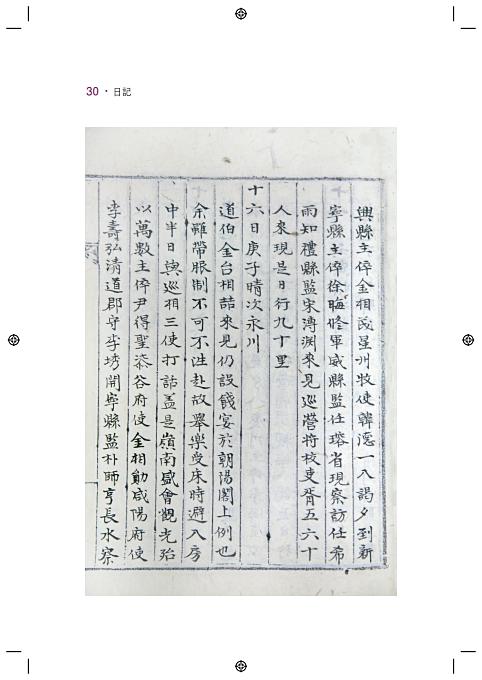 30 · 日記
興縣主倅金相戊星州牧使韓德一入謁夕到新
寧縣主倅徐晦修軍威縣監任瑢省現察訪任希
雨知禮縣監宋溥淵來見巡營將校吏胥五六十
人來現是日行九十里
十六日庚子晴次永川
道伯金台相喆來見仍設餞宴於朝陽閣上例也
余雖帶服制不可不往赴故舉樂受床時避入房
中半日與巡相三使打話盖是嶺南盛會觀光殆
以萬數主倅尹得聖漆谷府使金相勛咸陽府使
李壽弘淸道郡守李琇開寧縣監朴師亨長水察